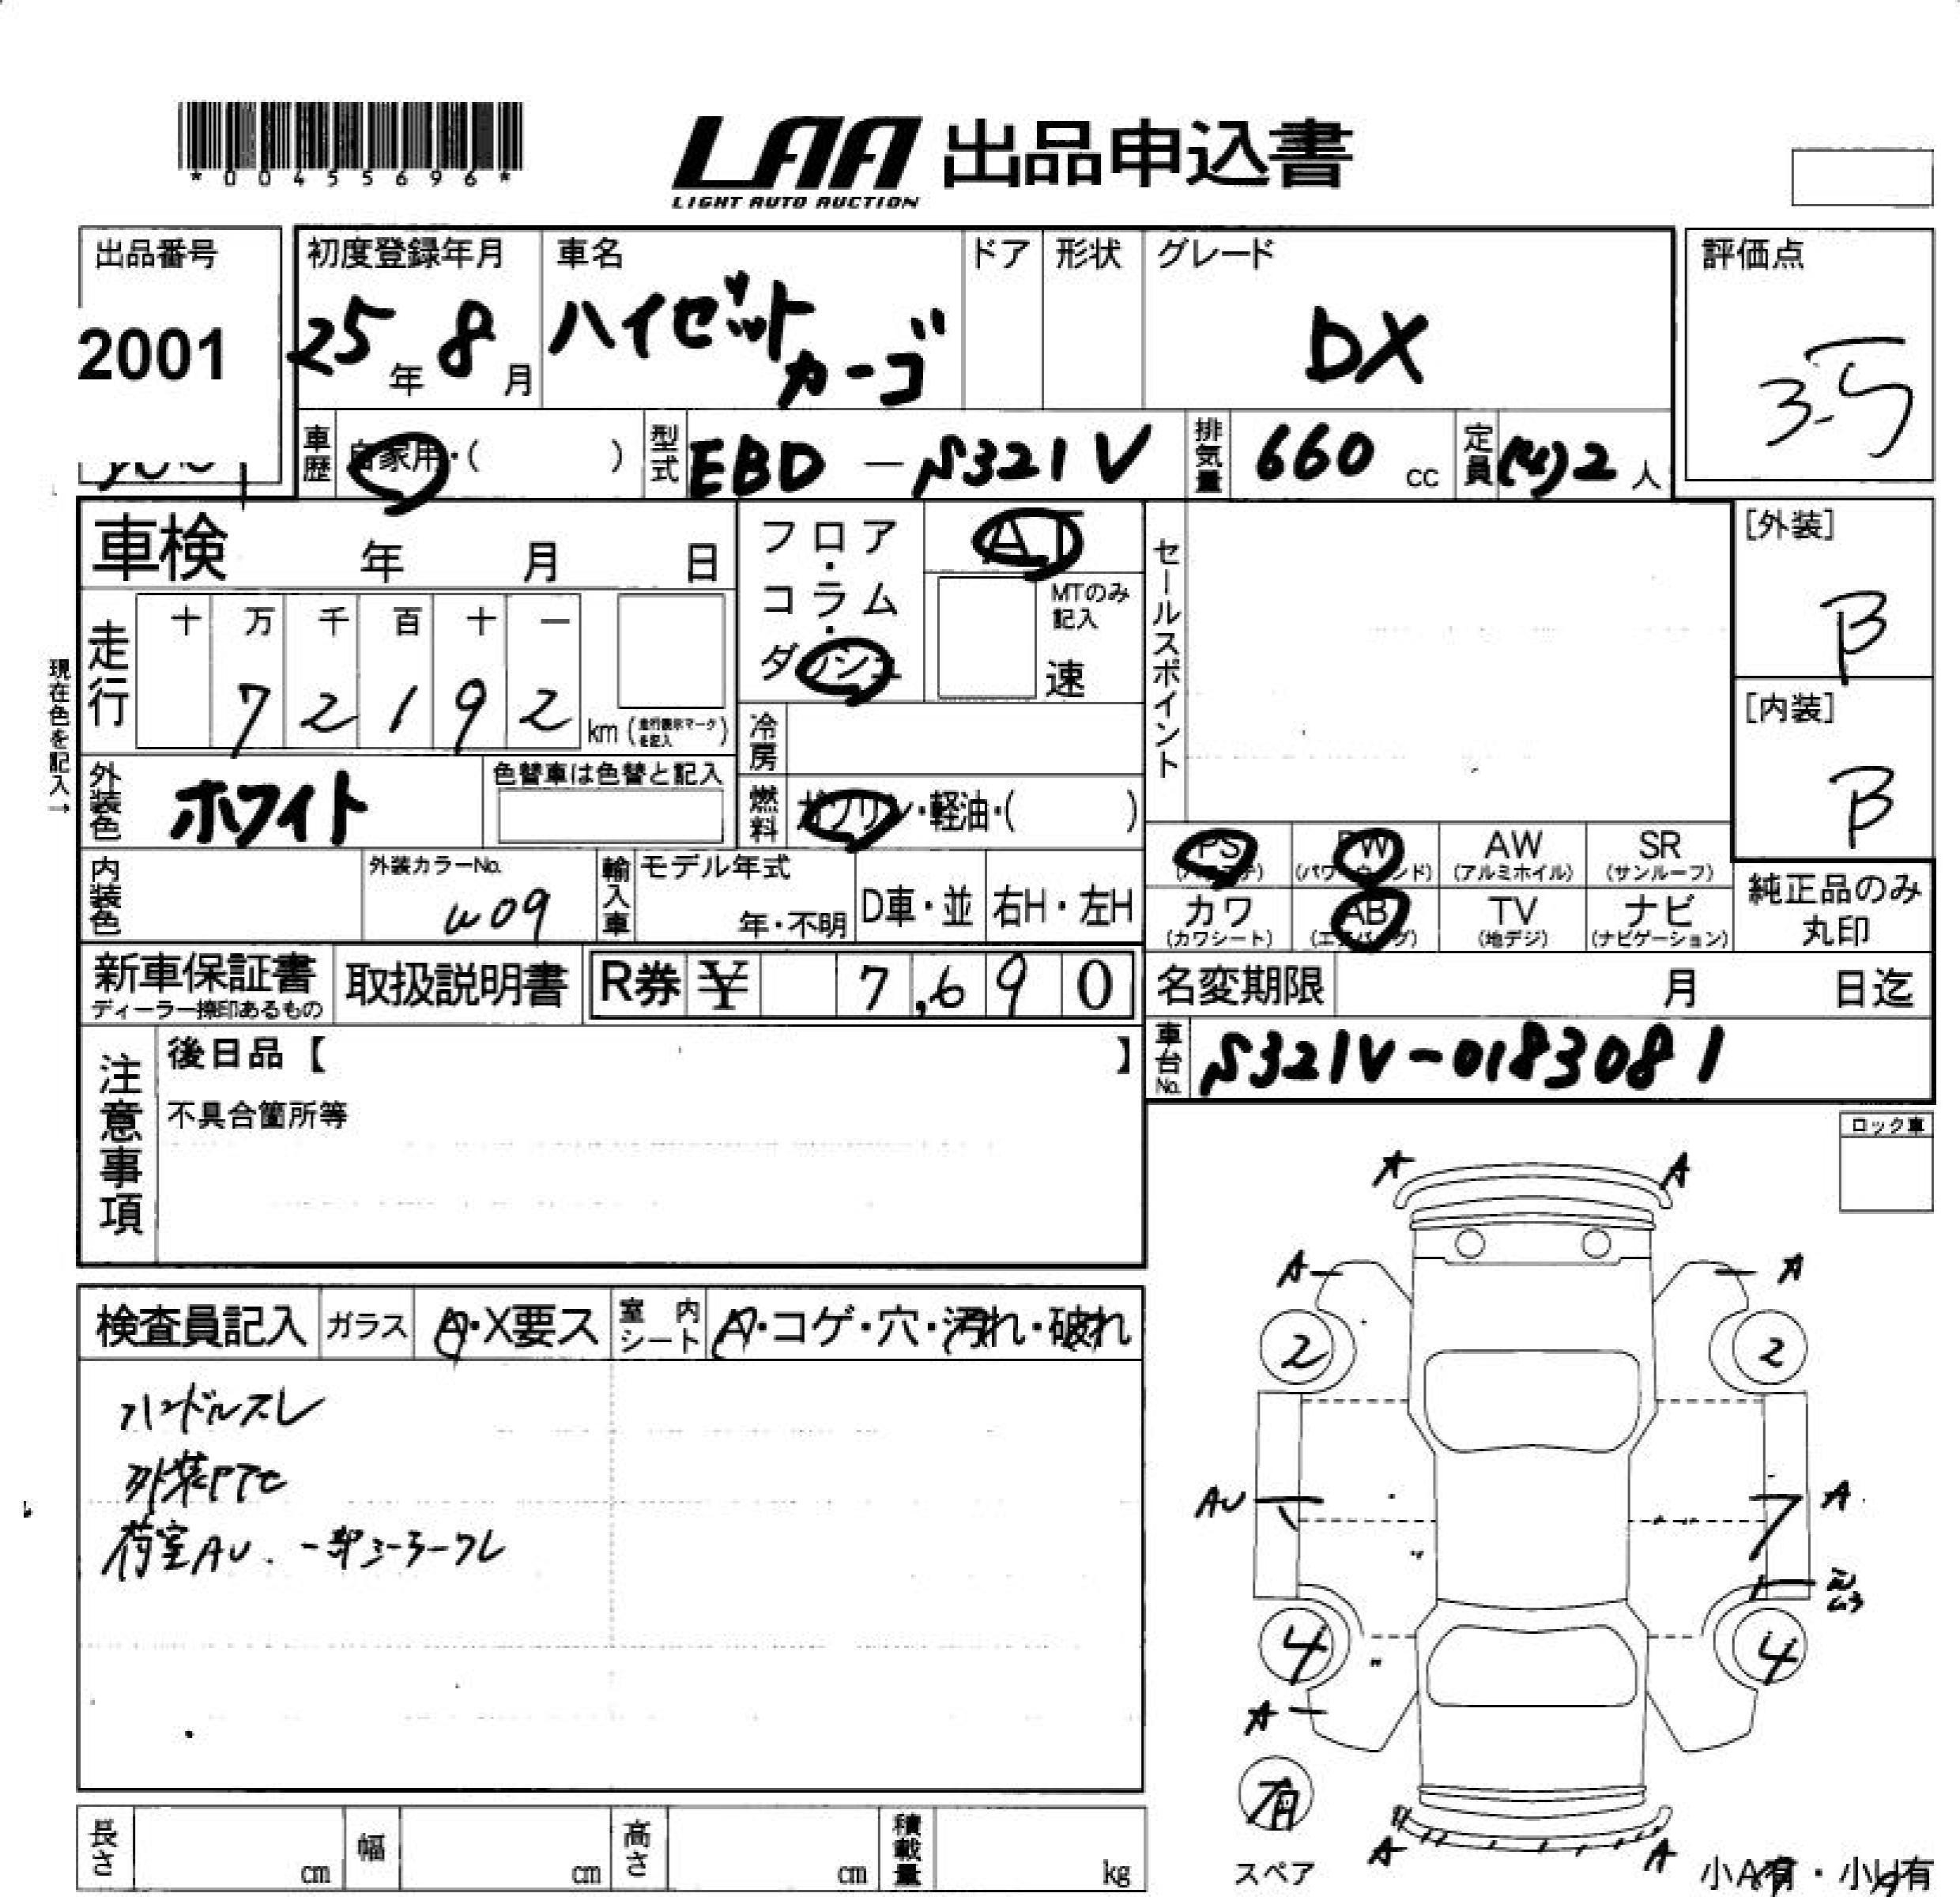 *00455696*
LAA 出品申込書
LIGHT AUTO AUCTION
出品番号 初度登録年月 車名 ドア 形状 グレード 評価点
2001 25年 8月 ハイゼット カーゴ DX 3.5
車歴 自家用・( ) 型式 EBD-S321V 排気量 660 cc 定員 (4)2 人
車検 年 月 日 フロア・コラム・ダッシュ AT セールスポイント [外装]
B
MTのみ記入 速
現在色を記入→
走行 十 万 千 百 十 一
7 2 1 9 2 km (走行表示マークを記入)
[内装]
B
冷房
外装色 ホワイト 色替車は色替と記入 燃料 ガソリン・軽油・( )
PS PW AW SR
(パワステ) (パワーウィンド) (アルミホイル) (サンルーフ)
内装色 外装カラーNo. W09 輸入車 モデル年式 年・不明 D車・並 右H・左H
カワ AB TV ナビ 純正品のみ
(カワシート) (エアバッグ) (地デジ) (ナビゲーション) 丸印
新車保証書 取扱説明書 R券 ¥ 7,690 名変期限 月 日迄
ディーラー捺印あるもの
注意事項 後日品【 】 車台No. S321V-0183081
不具合箇所等
ロック車
A A
A A
検査員記入 ガラス A・X要ス 室内シート A・コゲ・穴・汚れ・破れ
2 2
ハンドルスレ
外装
荷室AU.
AU A
4 4
A
有
スペア
A A
小A有・小U有
長さ cm 幅 cm 高さ cm 積載量 kg